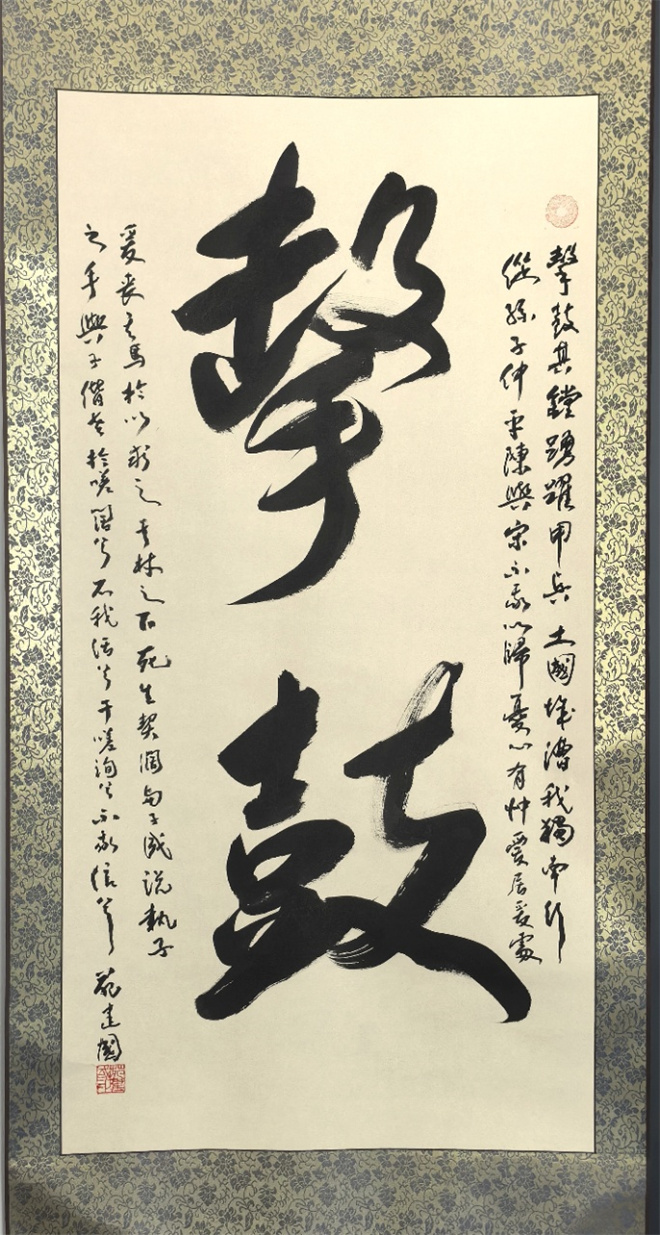 擊鼓其鏜踴躍用兵土國城漕我獨南行
從孫子仲平陳與宋不我以歸憂心有忡爰居爰處
擊鼓
爰喪其馬於以求之于林之下死生契闊与子成説執子
之手與子偕老於嗟闊兮不我活兮于嗟洵兮不我信兮 建國